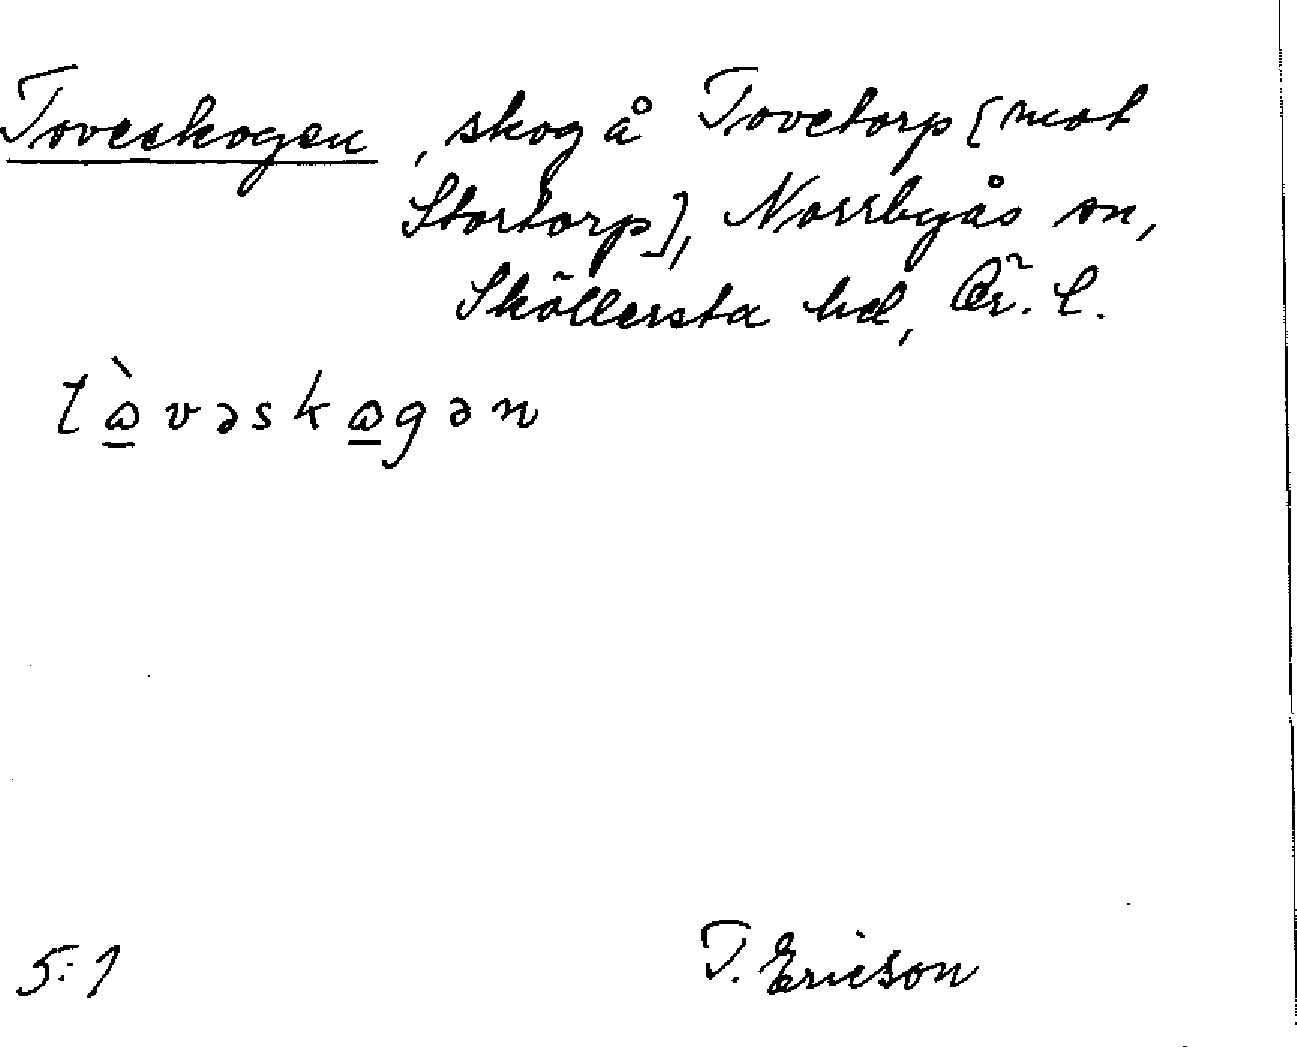 Toveskogen, skog å Tovetorp [mot
Stortorp], Norrbyås sn,
Sköllersta hd, Ör. l.
tὼ̲vəskω̲gən
5:1 T. Ericson